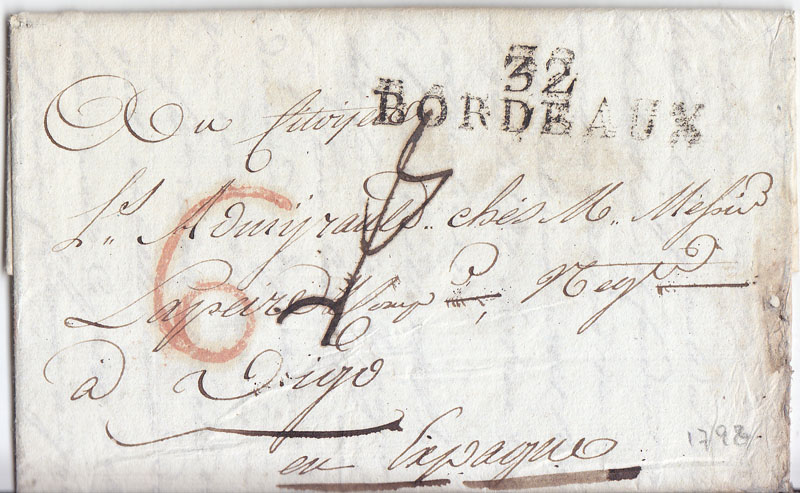 32
BORDEAUX
Au Citoyen
Ls. Admyrauld chés M. Messie
6
Lapeire & Comp Negt
à Vigo
en Espagne
1792